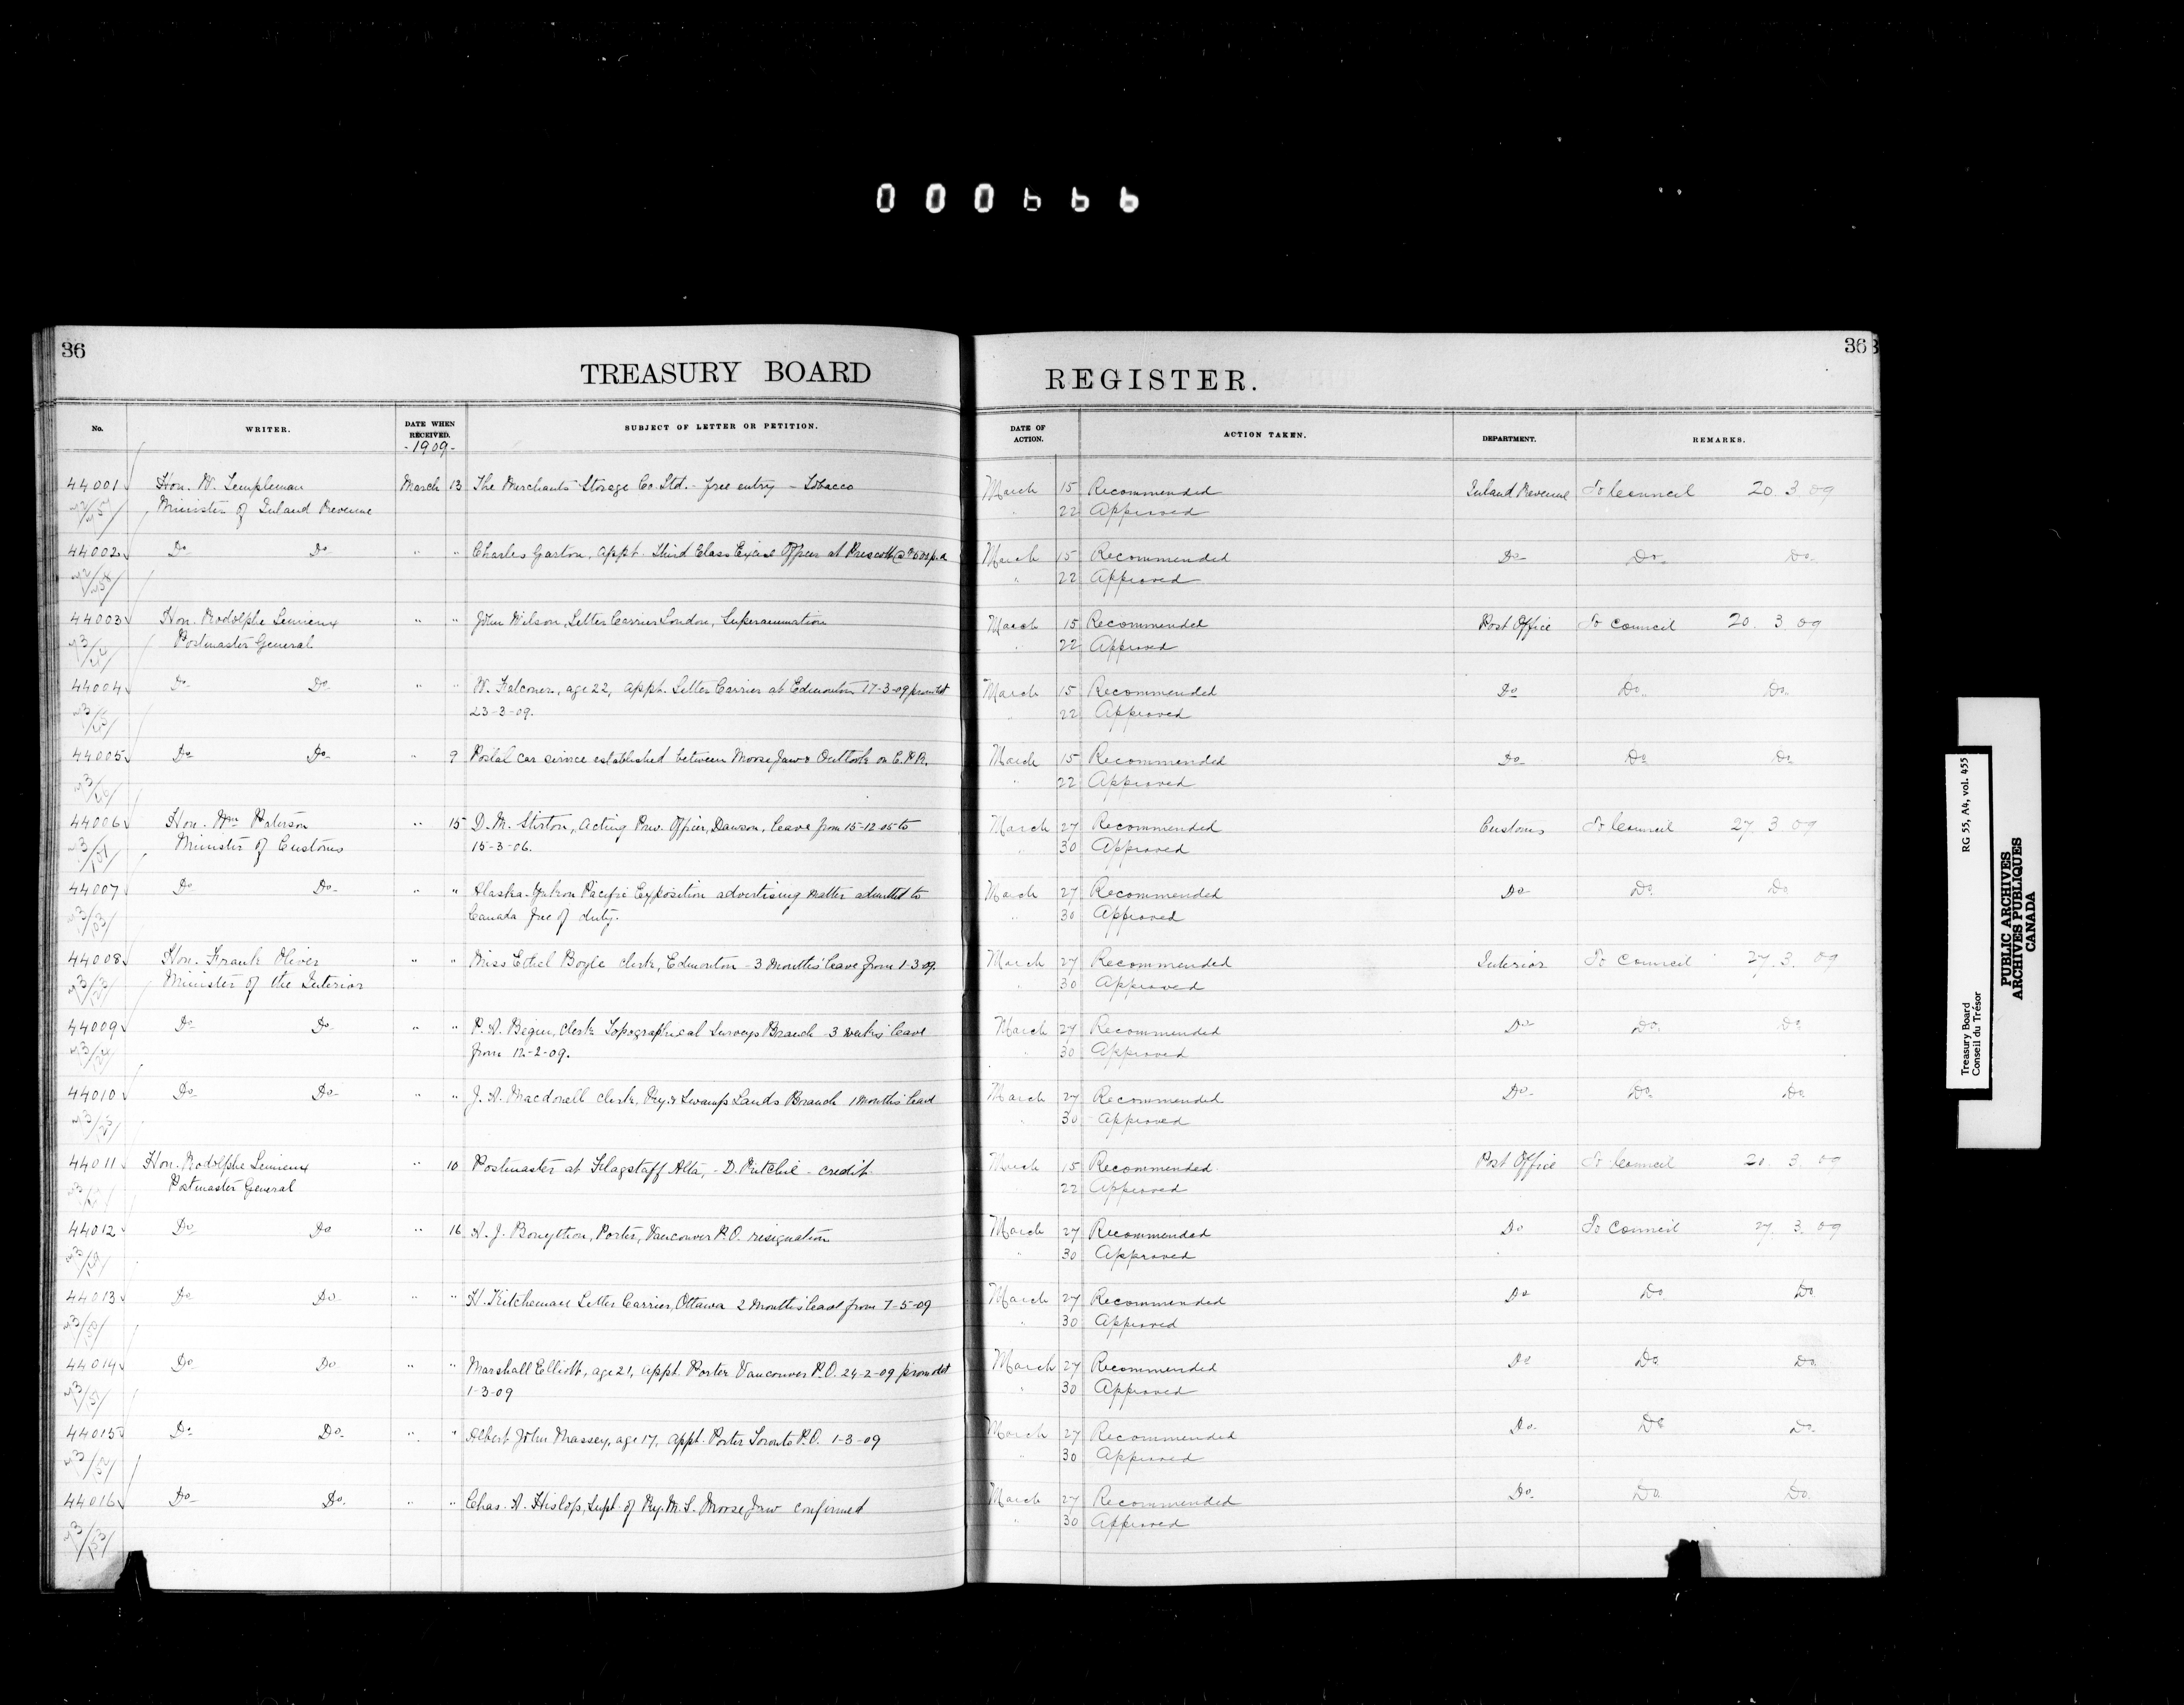 000666
36
TREASURY BOARD
No.
WRITER.
DATE WHEN RECEIVED.
SUBJECT OF LETTER OR PETITION.
-1909-
44001 Hon. W. Templeman March 13 The Merchants Storage Co. Ltd. - free entry - Tobacco
Minister of Inland Revenue
44002 Do Do " " Charles Garton, appt. Third Class Excise Officer at Prescott
44003 Hon. Rodolphe Lemieux " " John Wilson, Letter Carrier London, Superannuation
Postmaster General
44004 Do Do " " W. Falconer, age 22, appt. Letter Carrier at Edmonton 17-3-09
23-3-09.
44005 Do Do " 9 Postal car service established between Moose Jaw & Outlook on C.P.R.
44006 Hon. Wm Paterson " 15 D. M. Stirton, Acting Prev. Officer, Dawson, leave from 15-12-05 to
Minister of Customs 15-3-06.
44007 Do Do " " Alaska-Yukon Pacific Exposition advertising matter admitted to
Canada free of duty.
44008 Hon. Frank Oliver " " Miss Ethel Boyle clerk, Edmonton - 3 months' leave from 1-3-09.
Minister of the Interior
44009 Do Do " " P. A. Begin, clerk Topographical Surveys Branch 3 weeks' leave
from 12-2-09.
44010 Do Do " " J. A. Macdonell clerk, Ry. & Swamp Lands Branch 1 months' leave
44011 Hon. Rodolphe Lemieux " 10 Postmaster at Flagstaff Alta, - D. Ritchie - credit
Postmaster General
44012 Do Do " 16 A. J. Bonython, Porter, Vancouver P.O. resignation
44013 Do Do " " H. Kitcheman Letter Carrier, Ottawa 2 months' leave from 7-5-09
44014 Do Do " " Marshall Elliott, age 21, appt. Porter Vancouver P.O. 24-2-09
1-3-09
44015 Do Do " " Albert John Massey, age 17, appt. Porter Toronto P.O. 1-3-09
44016 Do Do " " Chas. A. Hislop, Supt. of Ry. M. S. Moose Jaw confirmed
36
REGISTER.
DATE OF ACTION.
ACTION TAKEN.
DEPARTMENT.
REMARKS.
March 15 Recommended Inland Revenue To Council 20. 3. 09
" 22 Approved
March 15 Recommended Do Do Do
" 22 Approved
March 15 Recommended Post Office To Council 20. 3. 09
" 22 Approved
March 15 Recommended Do Do Do
" 22 Approved
March 15 Recommended Do Do Do
" 22 Approved
March 27 Recommended Customs To Council 27. 3. 09
" 30 Approved
March 27 Recommended Do Do Do
" 30 Approved
March 27 Recommended Interior To Council 27. 3. 09
" 30 Approved
March 27 Recommended Do Do Do
" 30 Approved
March 27 Recommended Do Do Do
" 30 Approved
March 15 Recommended Post Office To Council 20. 3. 09
22 Approved
March 27 Recommended Do To Council 27. 3. 09
" 30 Approved
March 27 Recommended Do Do Do
" 30 Approved
March 27 Recommended Do Do Do
" 30 Approved
March 27 Recommended Do Do Do
" 30 Approved
March 27 Recommended Do Do Do
" 30 Approved
Treasury Board RG 55, A4, vol. 455
Conseil du Trésor
PUBLIC ARCHIVES
ARCHIVES PUBLIQUES
CANADA